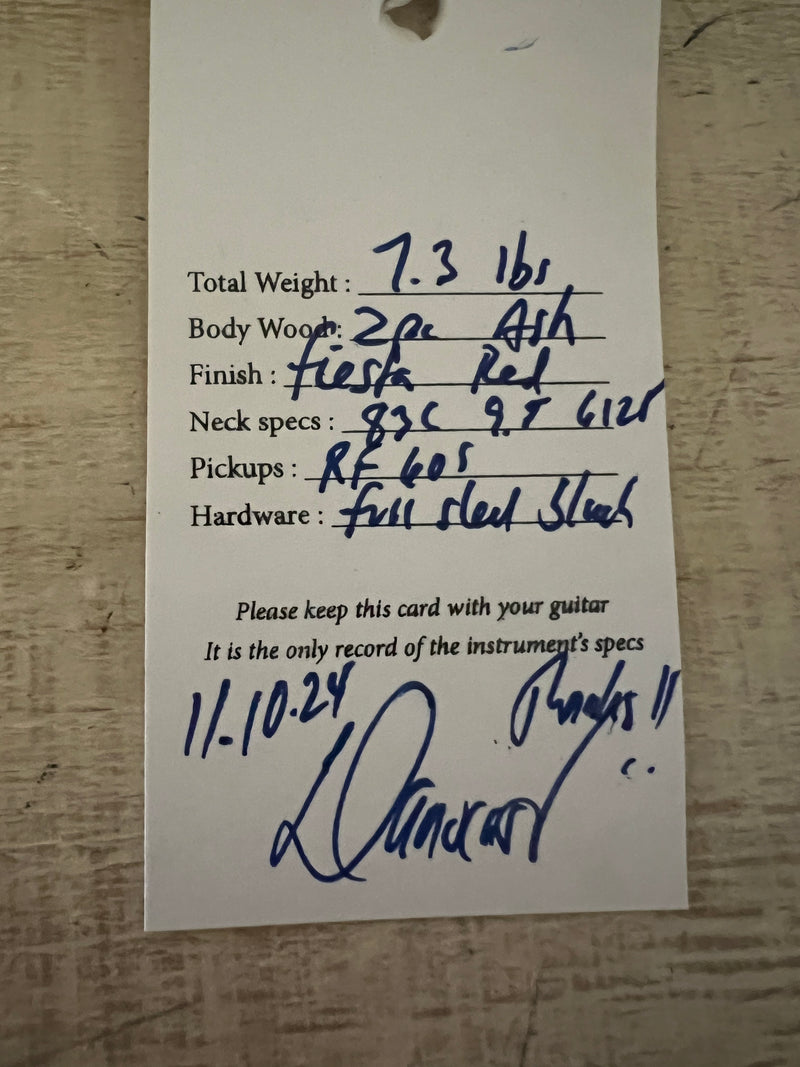 Total Weight : 7.3 lbs
Body Wood: 2pc Ash
Finish : fiesta Red
Neck specs : 83C 9.5 6125
Pickups : RF 60s
Hardware : full steel
Please keep this card with your guitar
It is the only record of the instrument's specs
11.10.24 Thanks !!